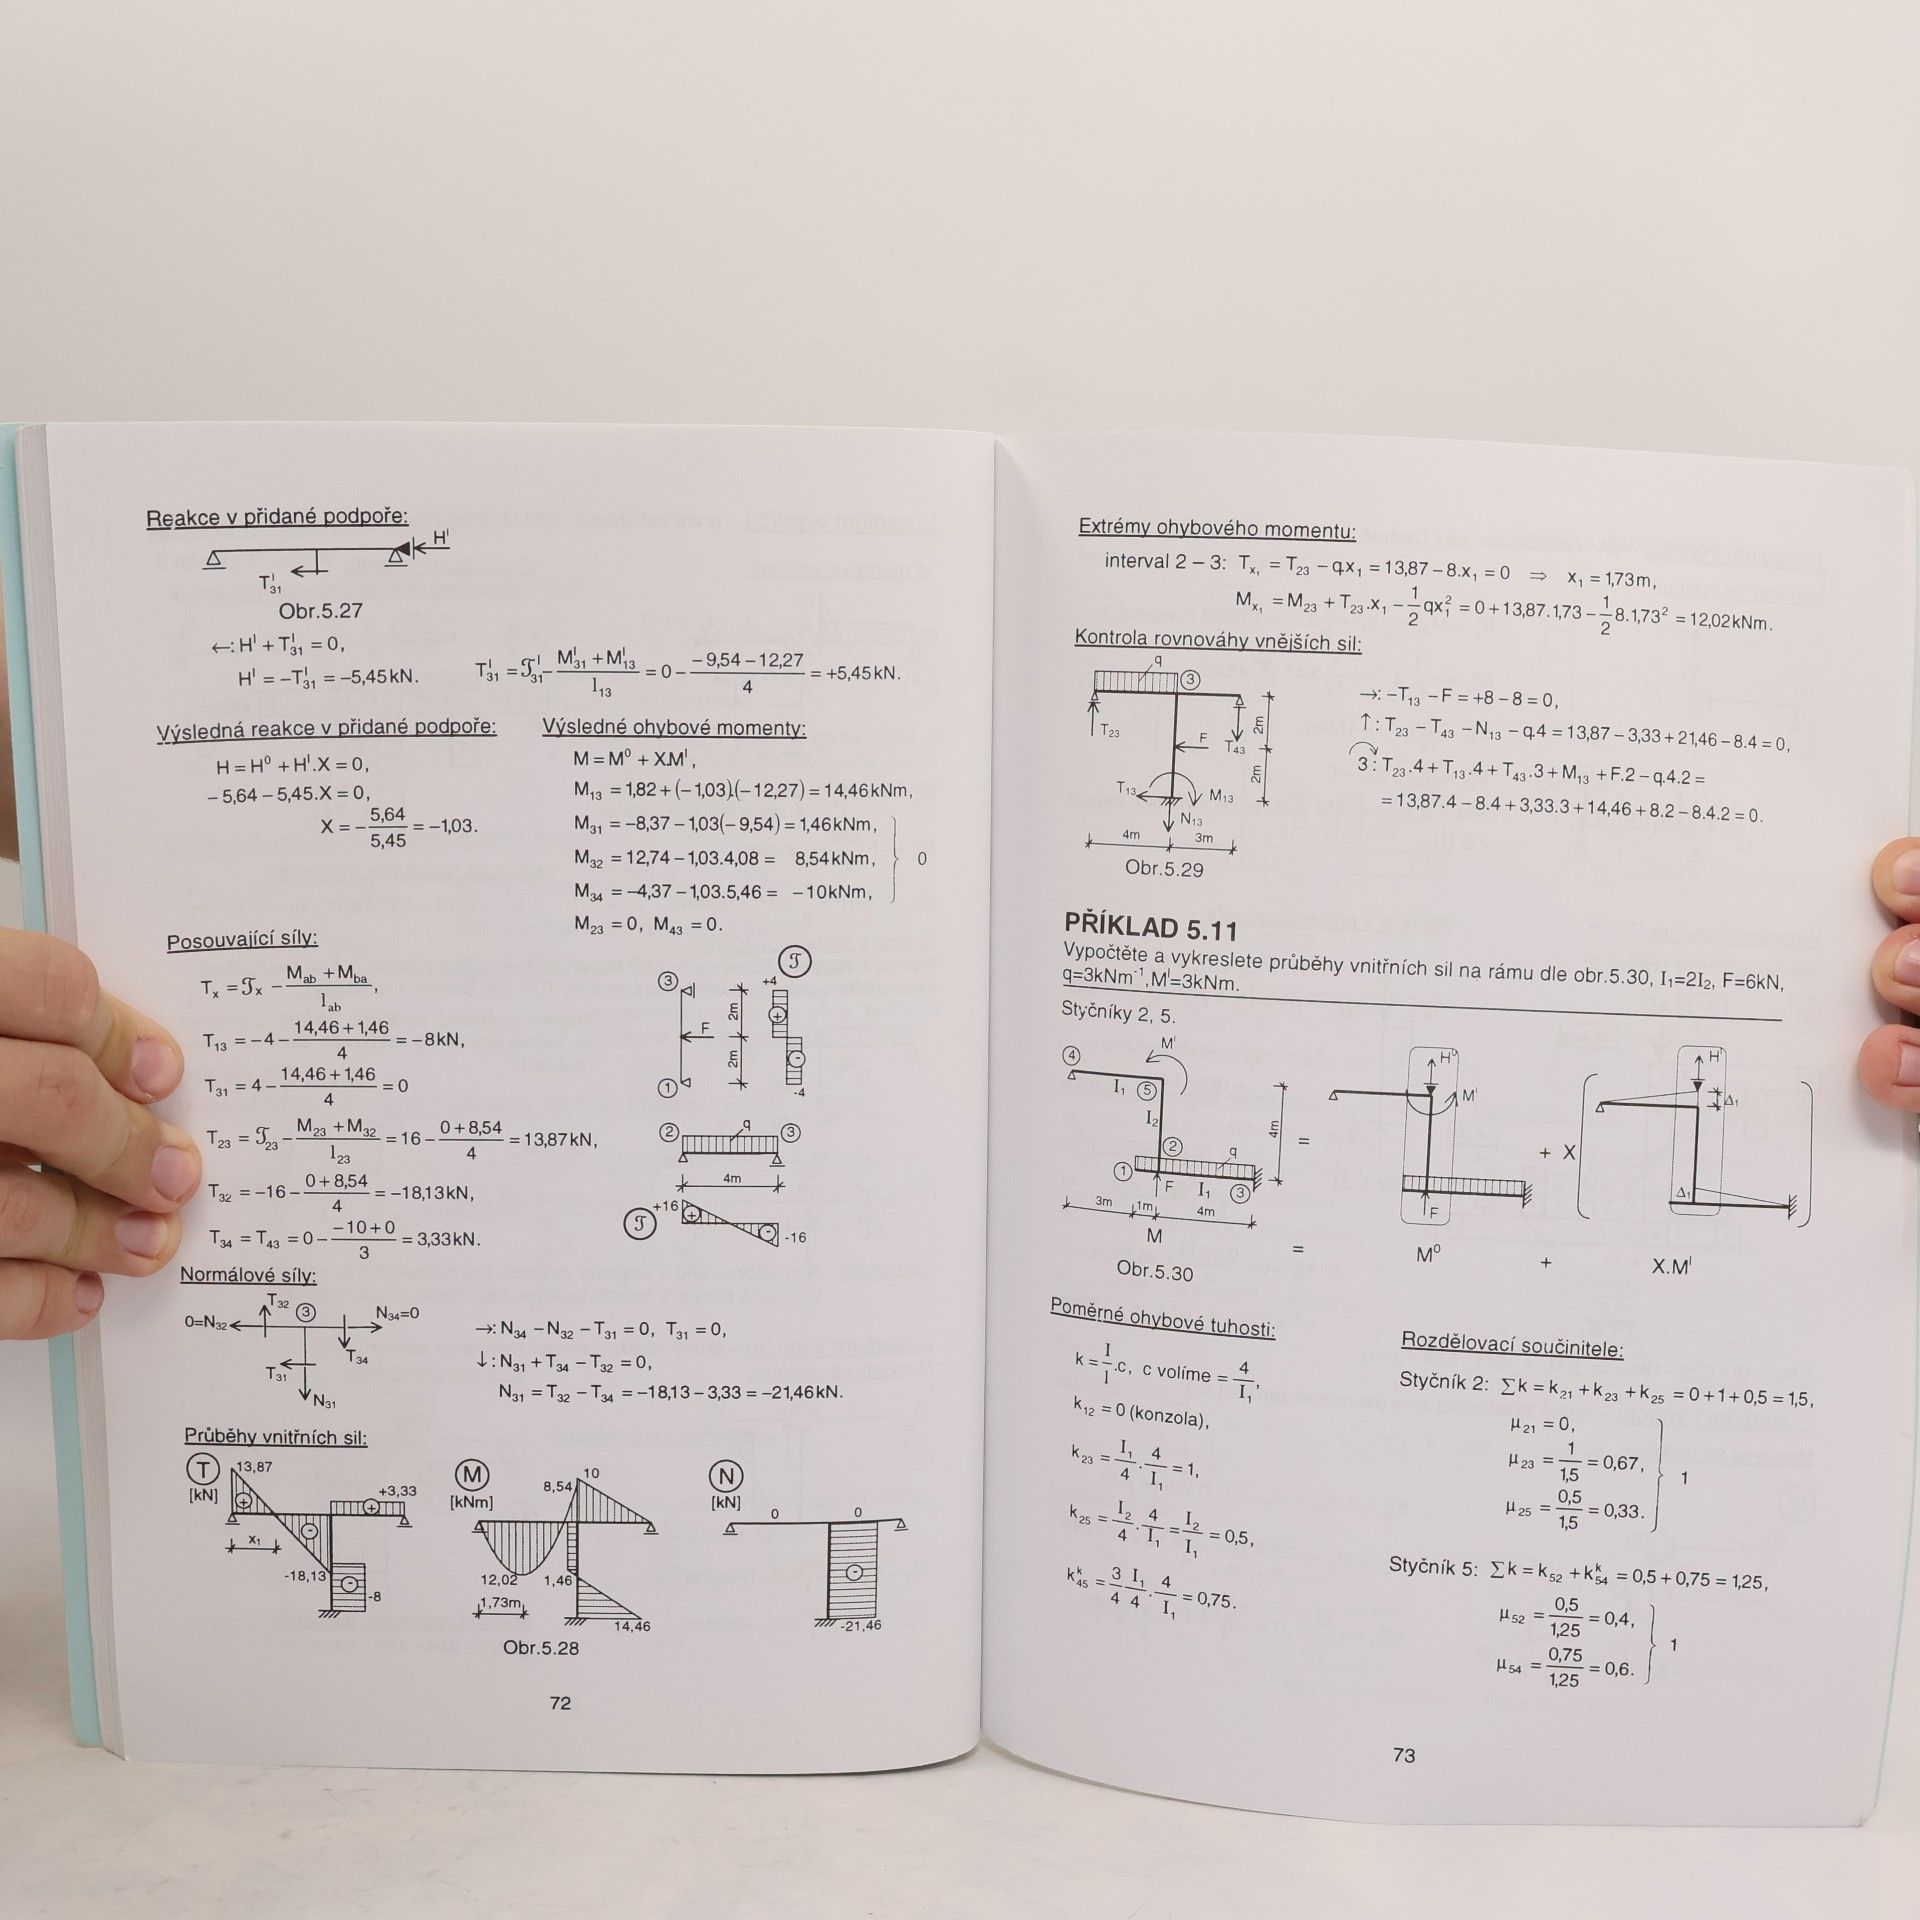 Reakce v přidané podpoře:
Hᴵ
Tᴵ₃₁
Obr.5.27
←: Hᴵ + Tᴵ₃₁ = 0,
Hᴵ = –Tᴵ₃₁ = –5,45 kN. Tᴵ₃₁ = 𝒯ᴵ₃₁ – (Mᴵ₃₁ + Mᴵ₁₃)/l₁₃ = 0 – (–9,54 – 12,27)/4 = +5,45 kN.
Výsledná reakce v přidané podpoře:
H = H⁰ + Hᴵ.X = 0,
–5,64 – 5,45.X = 0,
X = –5,64/5,45 = –1,03.
Výsledné ohybové momenty:
M = M⁰ + X.Mᴵ,
M₁₃ = 1,82 + (–1,03).(–12,27) = 14,46 kNm,
M₃₁ = –8,37 – 1,03(–9,54) = 1,46 kNm,
M₃₂ = 12,74 – 1,03.4,08 = 8,54 kNm, } 0
M₃₄ = –4,37 – 1,03.5,46 = –10 kNm,
M₂₃ = 0, M₄₃ = 0.
Posouvající síly:
Tₓ = 𝒯ₓ – (Mab + Mba)/lab,
T₁₃ = –4 – (14,46 + 1,46)/4 = –8 kN,
T₃₁ = 4 – (14,46 + 1,46)/4 = 0
T₂₃ = 𝒯₂₃ – (M₂₃ + M₃₂)/l₂₃ = 16 – (0 + 8,54)/4 = 13,87 kN,
T₃₂ = –16 – (0 + 8,54)/4 = –18,13 kN,
T₃₄ = T₄₃ = 0 – (–10 + 0)/3 = 3,33 kN.
𝒯
③ +4
2m
F
2m
① -4
② q ③
4m
𝒯 +16 -16
Normálové síly:
T₃₂ ③ N₃₄=0
0=N₃₂
T₃₄
T₃₁
N₃₁
→: N₃₄ – N₃₂ – T₃₁ = 0, T₃₁ = 0,
↓: N₃₁ + T₃₄ – T₃₂ = 0,
N₃₁ = T₃₂ – T₃₄ = –18,13 – 3,33 = –21,46 kN.
Průběhy vnitřních sil:
T [kN] 13,87 +3,33
x₁
-18,13 -8
M [kNm] 8,54 10
12,02 1,46
1,73m
14,46
N [kN] 0 0
-21,46
Obr.5.28
72
Extrémy ohybového momentu:
interval 2 – 3: Tx₁ = T₂₃ – q.x₁ = 13,87 – 8.x₁ = 0 ⇒ x₁ = 1,73 m,
Mx₁ = M₂₃ + T₂₃.x₁ – 1/2 qx₁² = 0 + 13,87.1,73 – 1/2 8.1,73² = 12,02 kNm.
Kontrola rovnováhy vnějších sil:
q ③
T₂₃
F
T₄₃
2m
2m
T₁₃ M₁₃
N₁₃
4m 3m
Obr.5.29
→: –T₁₃ – F = +8 – 8 = 0,
↑: T₂₃ – T₄₃ – N₁₃ – q.4 = 13,87 – 3,33 + 21,46 – 8.4 = 0,
3: T₂₃.4 + T₁₃.4 + T₄₃.3 + M₁₃ + F.2 – q.4.2 =
= 13,87.4 – 8.4 + 3,33.3 + 14,46 + 8.2 – 8.4.2 = 0.
PŘÍKLAD 5.11
Vypočtěte a vykreslete průběhy vnitřních sil na rámu dle obr.5.30, I₁=2I₂, F=6kN,
q=3kNm⁻¹, Mᴵ=3kNm.
Styčníky 2, 5.
④ Mᴵ
I₁ ⑤
I₂
4m
① ② q
F I₁ ③
3m 1m 4m
M
=
H⁰
Mᴵ
F
M⁰
+ X
Hᴵ
Δ₁
Δ₁
= + X.Mᴵ
Obr.5.30
Poměrné ohybové tuhosti:
k = I/l .c, c volíme = 4/I₁,
k₁₂ = 0 (konzola),
k₂₃ = I₁/4 . 4/I₁ = 1,
k₂₅ = I₂/4 . 4/I₁ = I₂/I₁ = 0,5,
kᵏ₄₅ = 3/4 I₁/4 . 4/I₁ = 0,75.
Rozdělovací součinitele:
Styčník 2: ∑k = k₂₁ + k₂₃ + k₂₅ = 0 + 1 + 0,5 = 1,5,
μ₂₁ = 0,
μ₂₃ = 1/1,5 = 0,67, } 1
μ₂₅ = 0,5/1,5 = 0,33.
Styčník 5: ∑k = k₅₂ + kᵏ₅₄ = 0,5 + 0,75 = 1,25,
μ₅₂ = 0,5/1,25 = 0,4, } 1
μ₅₄ = 0,75/1,25 = 0,6.
73